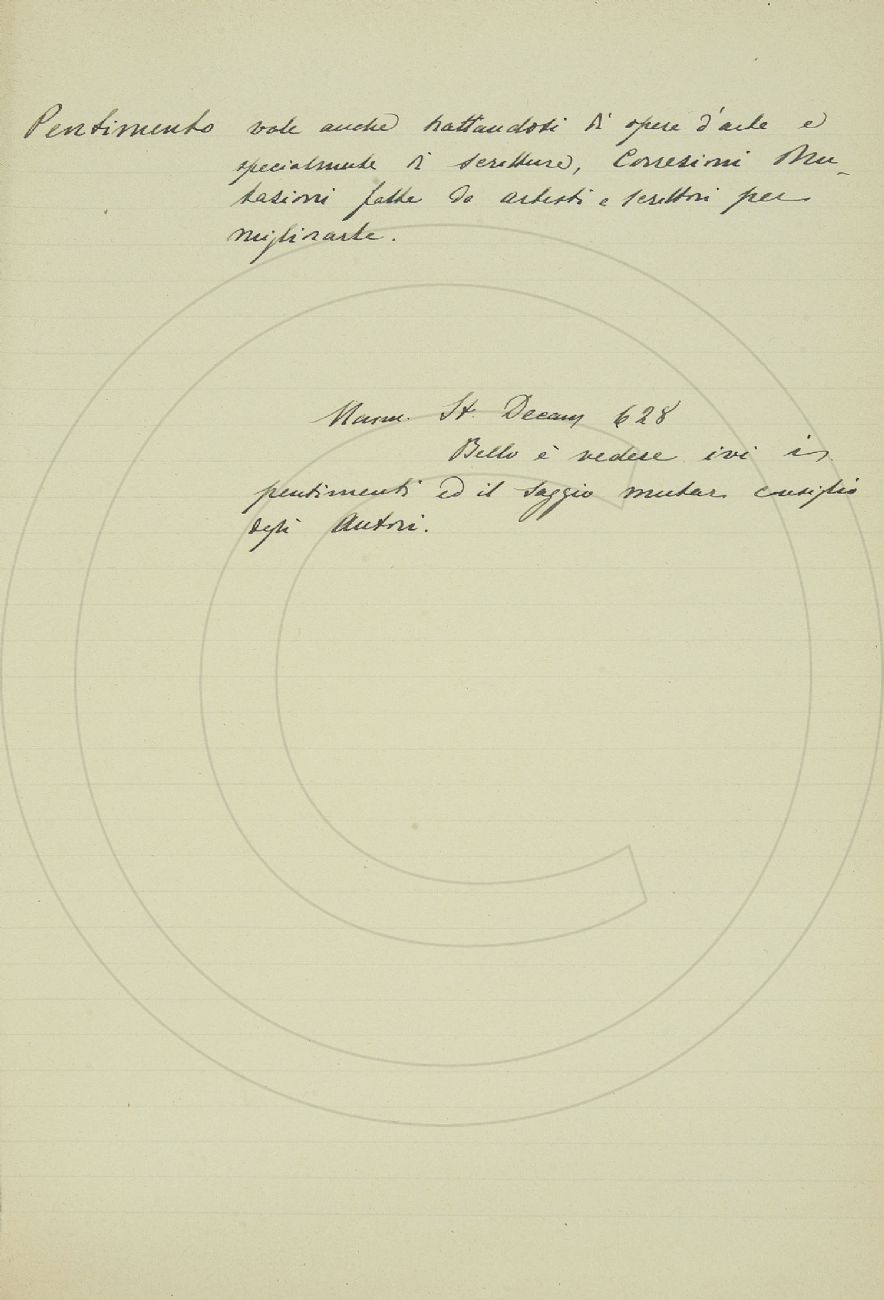 Pentimento vale anche trattandosi di opere d'arte e
specialmente di scritture, Correzioni Mu-
tazioni fatte da artisti e scrittori per
migliorarle.
Mann. St. Decam 628
Bello è vedere ivi i
pentimenti ed il saggio mutar consiglio
degli Autori.